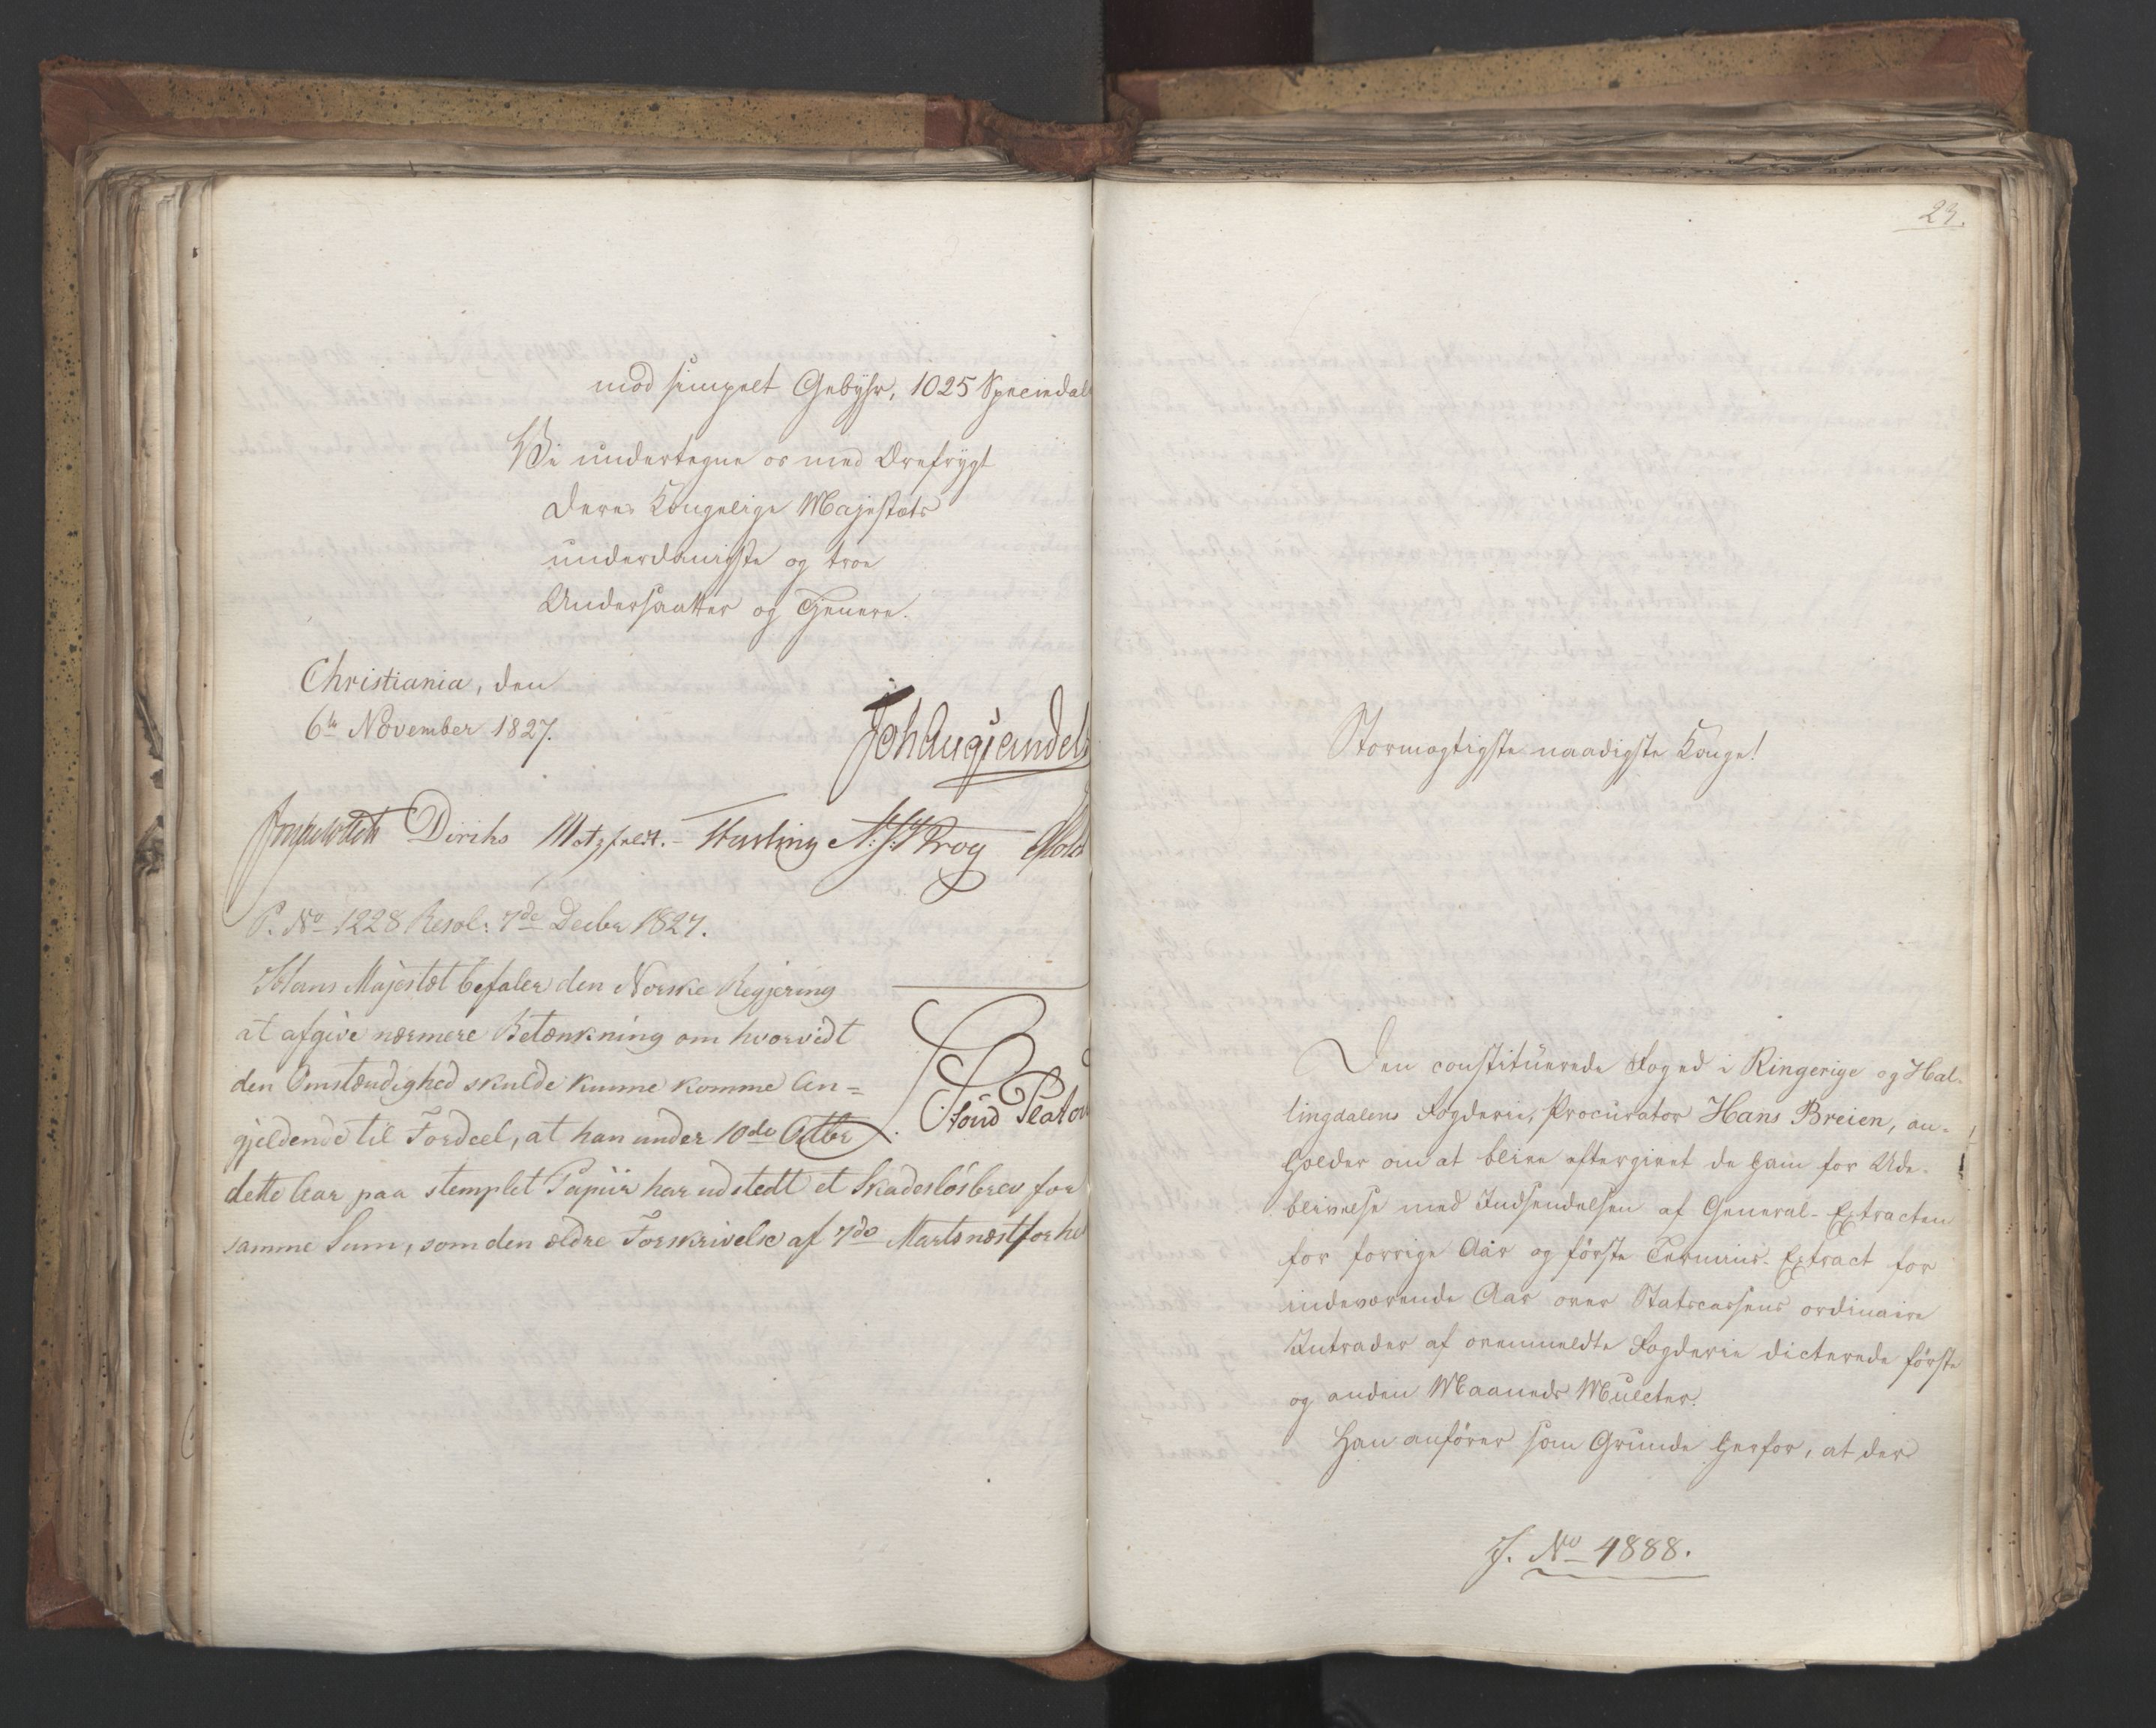 mod simpelt Gebyhr, 1025 Speciedal
Vi undertegne os med Ærefrygt
Deres Kongelige Majestæts
underdanigste og troe
Undersaatter og Tjenere.
Christiania, den
6te November 1827.
Joh Aug Sandels
Diriks Motzfeldt. Fasting Krog
P. No 1228 Resol: 7de Decbr 1827.
Hans Majestæt befaler den Norske Regjering
at afgive nærmere Betænkning om hvorvidt
den Omstændighed skulde kunne komme An=
gjeldende til Fordeel, at han under 10de Octbr
dette Aar paa stemplet Papiir har udstedt et Skadesløsbrev for
samme Sum, som den ældre Forskrivelse af 7de Marts næstforhe
23.
Stormægtigste naadigste Konge!
Den constituerede Foged i Ringerige og Hal-
lingdalens Fogderie, Procurator Hans Breien, an-
holder om at blive eftergivet de ham for Ude-
blivelse med Indsendelsen af General-Extracten
for forrige Aar og første Termins-Extract for
indeværende Aar over Statscassens ordinaire
Intrader af ovenmeldte Fogderie dicterede første
og anden Maaneds Mulcter.
Han anfører som Grunde herfor, at der
J. No 4888.